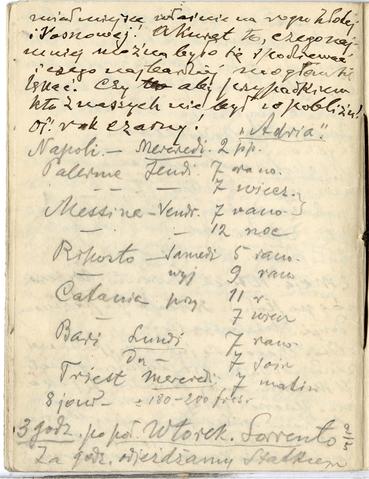 miał miejsce właśnie na rogu Złotej
i Sosnowej! Akurat to, czego naj
mniej można było się spodziewać
i czego najbardziej mogłam się
lękać. Czy aby przypadkiem
kto z naszych nie był w pobliżu!
rok czarny!
"Adria".
Napoli. — Mercredi. 2 pp.
Palerme Jeudi 7 rano.
— — 7 wiecz.
Messine – Vendr. 7 rano
— 12 noc
Riposto – Samedi 5 rano.
wyj 9 rano
Catania przy 11 r.
7 wiecz
Bari Lundi 7 rano
Do — 7 soir
Triest mercredi 7 matin
8 jours ± 180–200 fres
3 godz. po poł. Wtorek. Sorrento
Za godz. odjeżdżamy statkiem